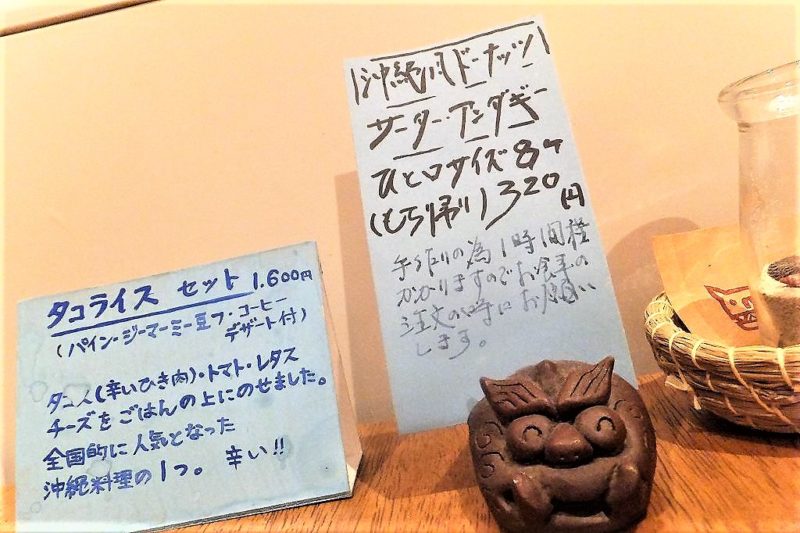 タコライス セット 1.600円
(パイン・ジーマーミー豆フ・コーヒー
デザート付)
タコス(辛いひき肉)・トマト・レタス
チーズをごはんの上にのせました。
全国的に人気となった
沖縄料理の1つ。 辛い!!
沖縄風ドーナッツ
サーターアンダギー
ひと口サイズ8ケ
(もち帰り)320円
手作りの為1時間程
かかりますのでお食事の
注文の時にお願い
します。